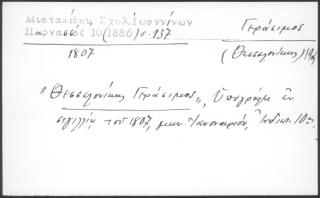 Μυστακίδου, Σχολ. Ἰωαννίνων
Παρνασσός 10 (1886) σ. 137
Γεράσιμος
1807
(Θεσσαλονίκης)
"Θεσσαλονίκης Γεράσιμος", Ὑπογράφει ἐν
σιγιλλίῳ τοῦ 1807, μηνὶ Ἰανουαρίου, Ἰνδικ. 10ης.